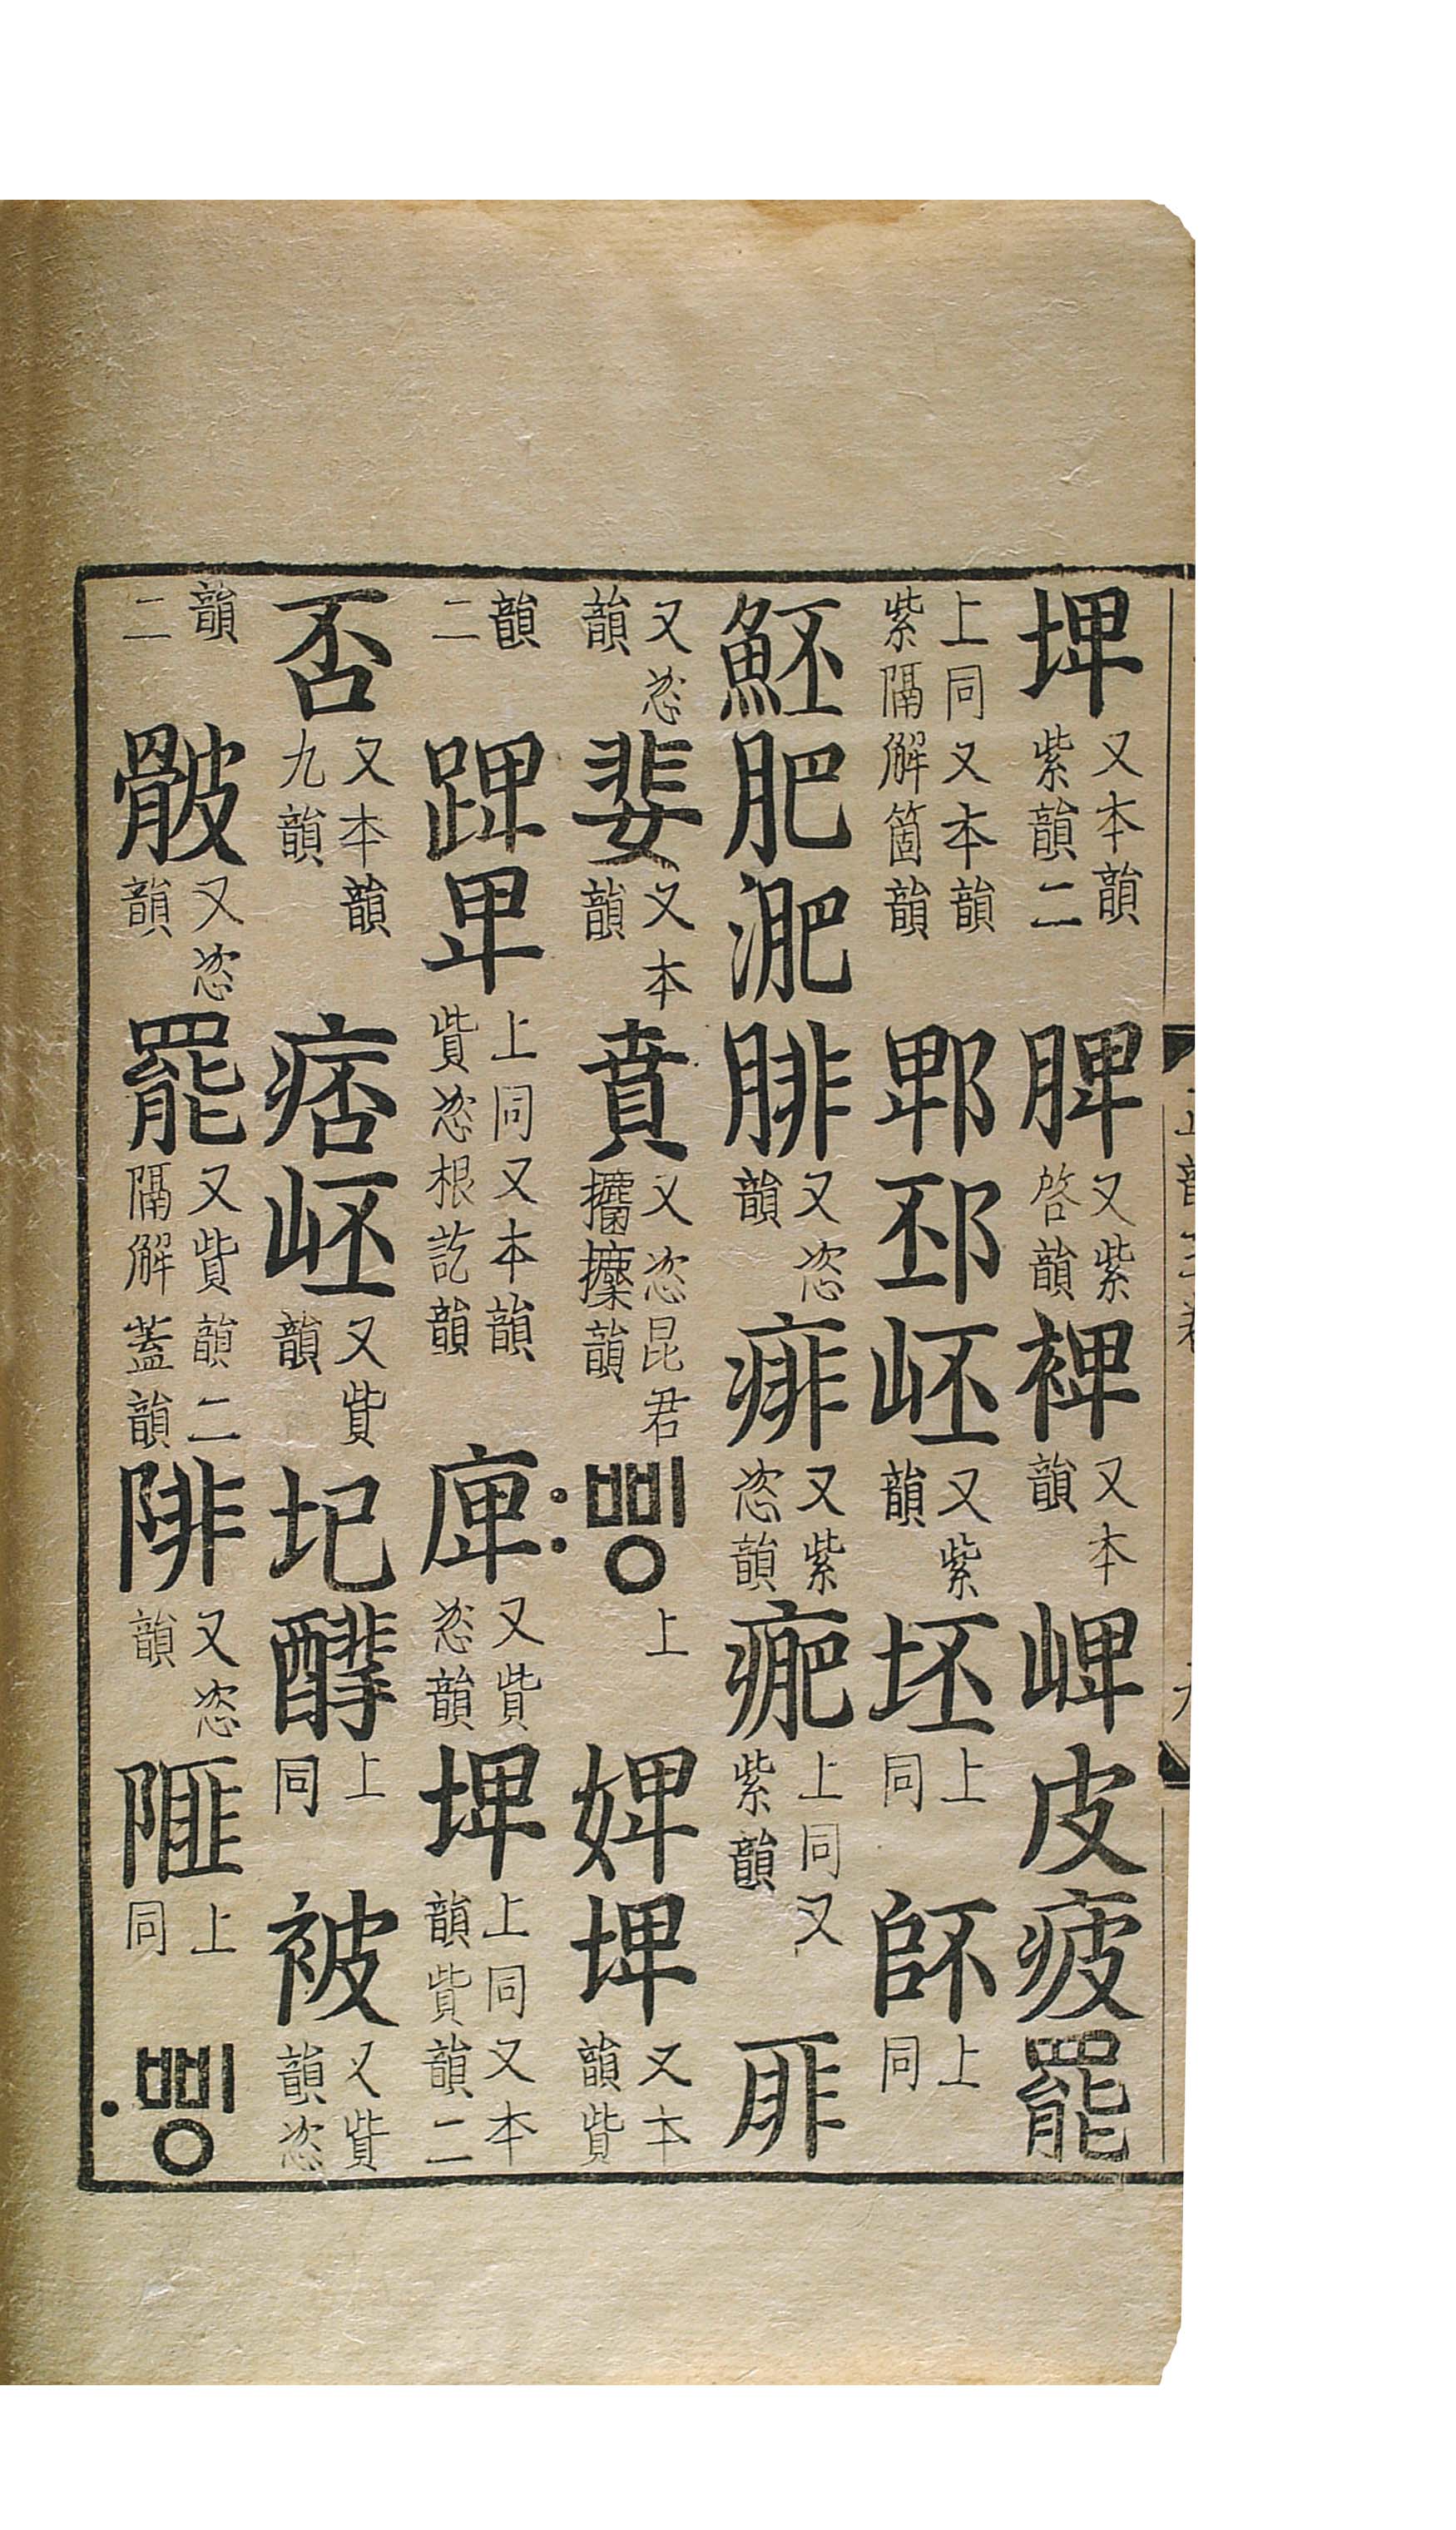 埤又本韻紫韻二脾又紫啓韻裨又本韻崥皮疲罷
上同又本韻紫隔解箇韻郫邳岯又紫韻坯上同上同
魾肥淝腓又恣韻痱又紫恣韻上同又紫韻厞
又恣韻婓又本韻賁又恣昆君韻:삥上婢埤又本韻貲
韻二卑上同又本韻貲恣根訖韻庳又貲恣韻埤上同又本韻貲韻二
否又本韻九韻痞岯又貲韻圮上同被又貲韻恣
韻二骳又恣韻罷又貲韻二隔解蓋韻陫又恣韻上同·삥